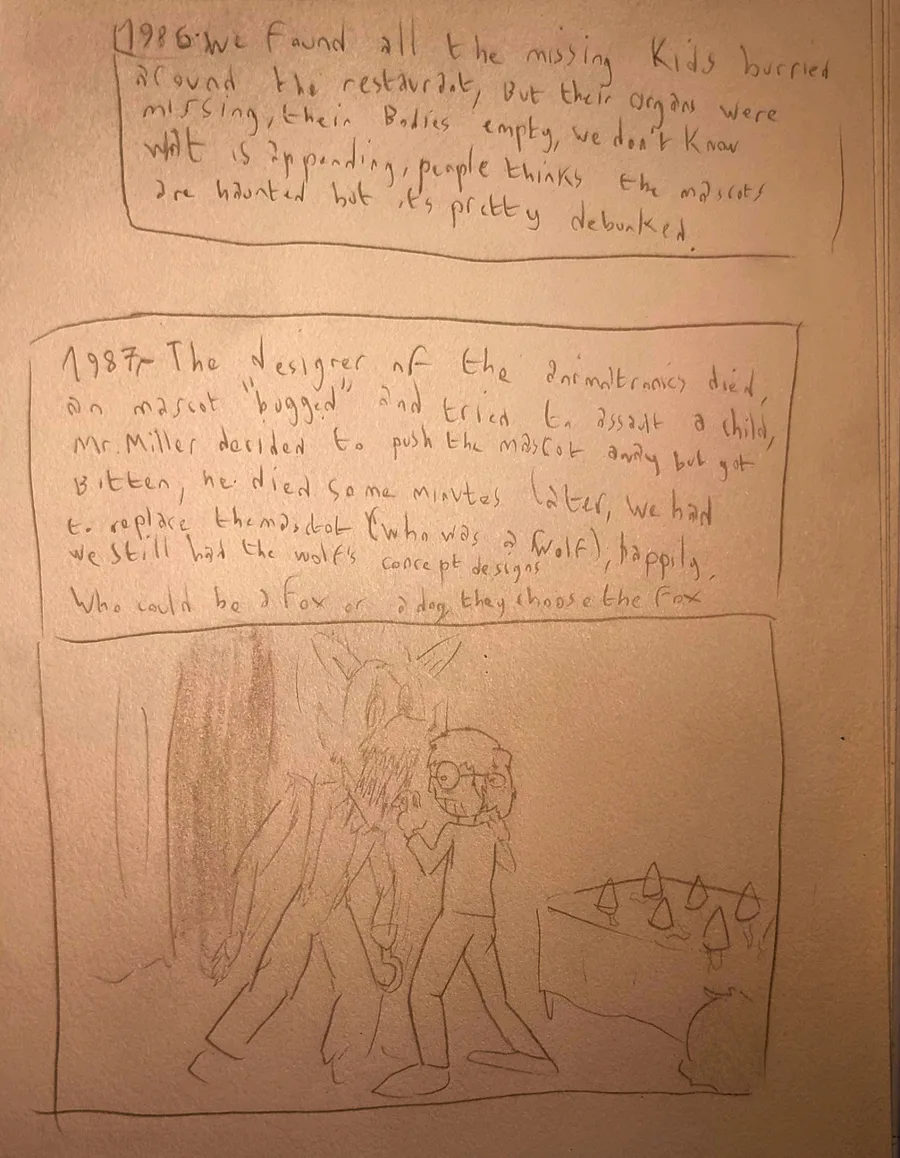 1986: We found all the missing kids burried
around the restaurant, But their organs were
missing, their Bodies empty, we don't know
what is appending, people thinks the mascots
are haunted but it's pretty debunked.
1987- The designer of the animatronics died,
an mascot "bugged" and tried to assault a child,
Mr. Miller decided to push the mascot away but got
Bitten, he died some minutes later, we had
to replace the mascot (who was a wolf), happily,
we still had the wolf's concept designs
Who could be a fox or a dog, they choose the fox